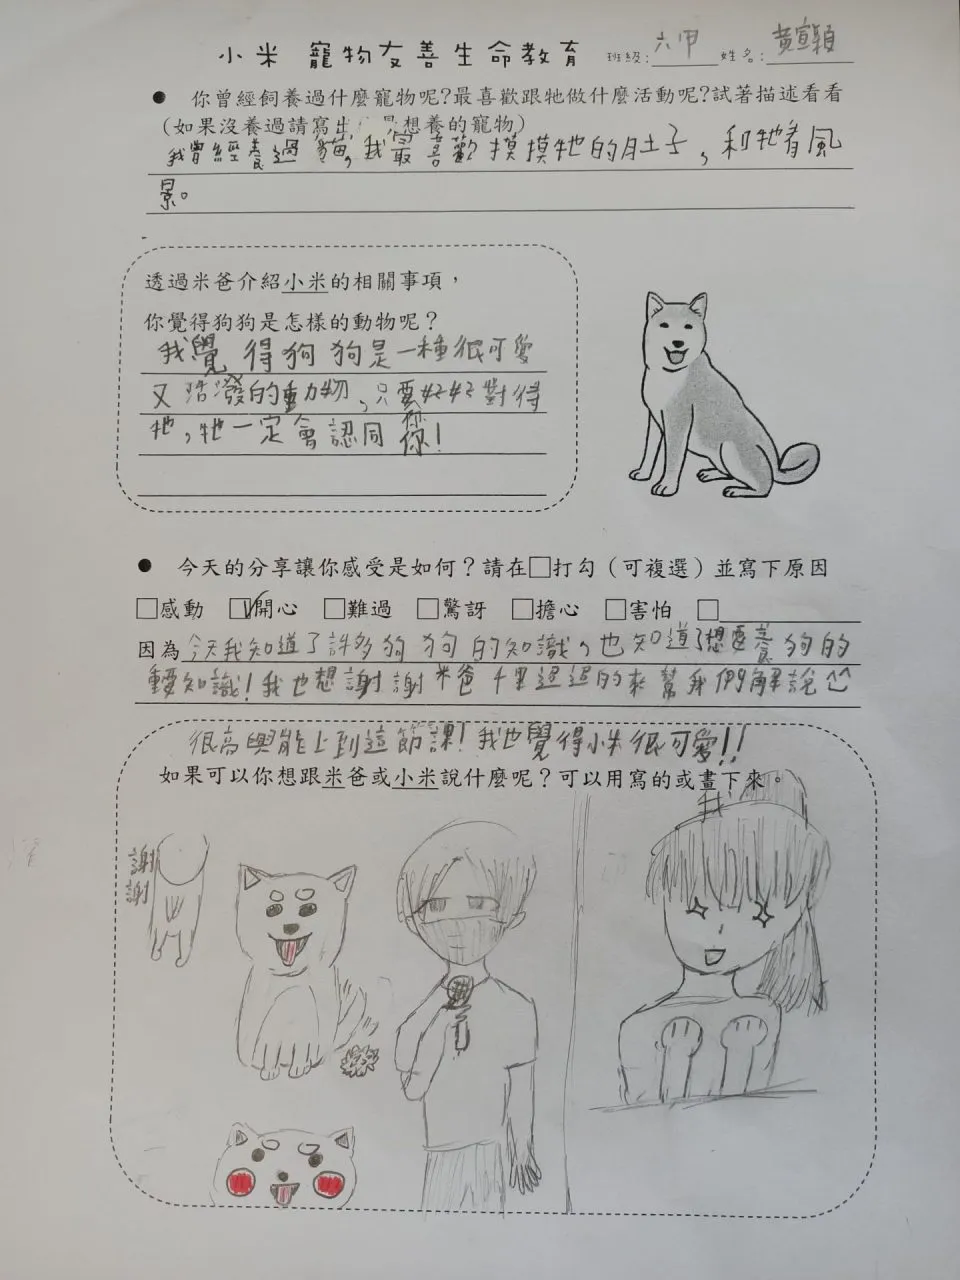 小米 寵物友善生命教育 班級:六甲 姓名:黃宣穎
● 你曾經飼養過什麼寵物呢?最喜歡跟牠做什麼活動呢?試著描述看看
(如果沒養過請寫出 想養的寵物)
我曾經養過貓,我最喜歡摸摸牠的肚子,和牠看風
景。
透過米爸介紹小米的相關事項,
你覺得狗狗是怎樣的動物呢?
我覺得狗狗是一種很可愛
又活潑的動物,只要好好對得
牠,牠一定會認同你!
● 今天的分享讓你感受是如何?請在□打勾(可複選)並寫下原因
□感動 ☑開心 □難過 □驚訝 □擔心 □害怕 □
因為今天我知道了許多狗狗的知識,也知道了想要養狗的
重要知識!我也想謝謝米爸千里迢迢的來幫我們解說^^
很高興能上到這節課!我也覺得小米很可愛!!
如果可以你想跟米爸或小米說什麼呢?可以用寫的或畫下來。
我
謝謝